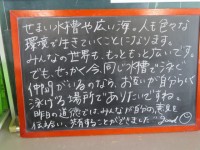 せまい水槽や広い海。人も色々な
環境で生きていくことになります。
みんなの世界も、もっともっと広いです。
でも、せっかく今、同じ水槽で泳ぐ
仲間がいるのなら、お互いが自分らしく
泳げる場所でありたいですね。
昨日の道徳では、みんなが自分の意見を
伝え合い、共有することができました。Good